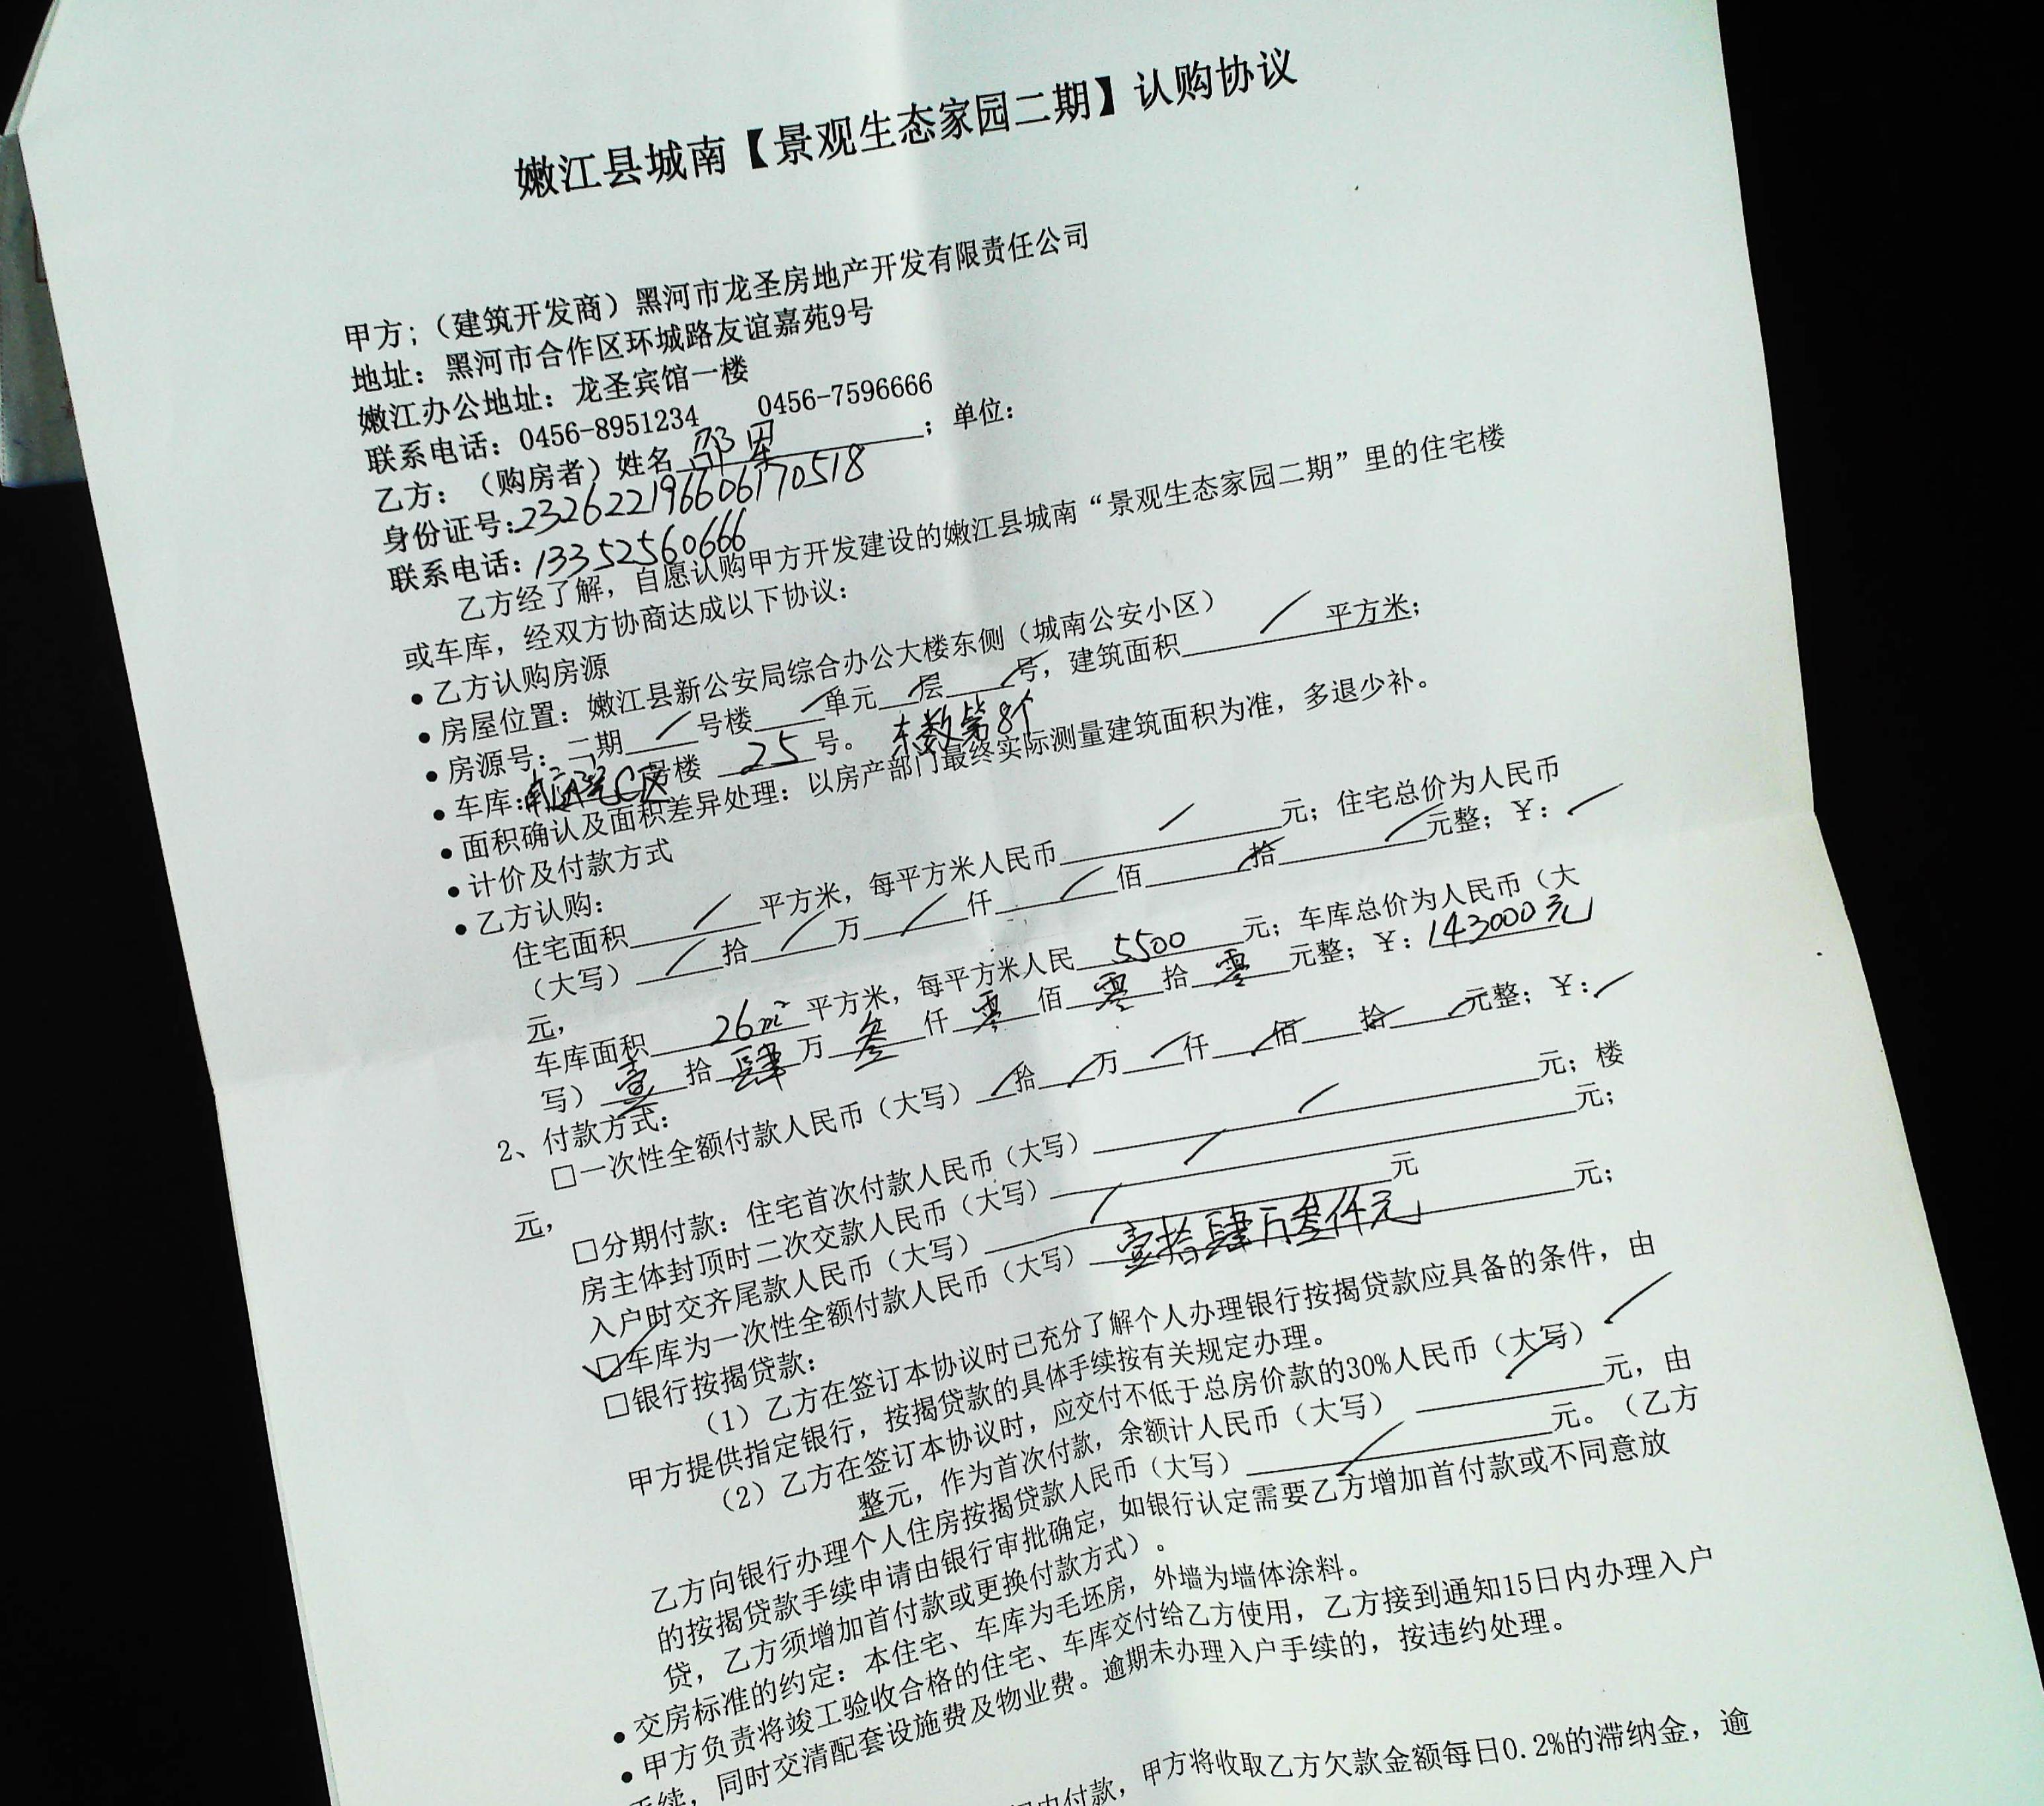 嫩江县城南【景观生态家园二期】认购协议
甲方；（建筑开发商）黑河市龙圣房地产开发有限责任公司
地址：黑河市合作区环城路友谊嘉苑9号
嫩江办公地址：龙圣宾馆一楼
联系电话：0456-8951234 0456-7596666
乙方：（购房者）姓名 邵 ；单位：
身份证号：232622196606170518
联系电话：13352560666
乙方经了解，自愿认购甲方开发建设的嫩江县城南“景观生态家园二期”里的住宅楼
或车库，经双方协商达成以下协议：
•乙方认购房源
•房屋位置：嫩江县新公安局综合办公大楼东侧（城南公安小区）
•房源号：二期 / 号楼 / 单元 / 层 / 号，建筑面积 / 平方米；
•车库： C区 号楼 25 号。东数第8个
•面积确认及面积差异处理：以房产部门最终实际测量建筑面积为准，多退少补。
•计价及付款方式
•乙方认购：
住宅面积 / 平方米，每平方米人民币 / 元；住宅总价为人民币
（大写） / 拾 / 万 / 仟 / 佰 / 拾 / 元整；￥： /
元，
车库面积 26m² 平方米，每平方米人民 5500 元；车库总价为人民币（大
写）壹拾肆万叁仟零佰零拾零元整；￥：143000元
2、付款方式：
□一次性全额付款人民币（大写） / 拾 / 万 / 仟 / 佰 / 拾 / 元整；￥： /
元，
□分期付款：住宅首次付款人民币（大写） / 元；楼
房主体封顶时二次交款人民币（大写） / 元；
入户时交齐尾款人民币（大写） / 元
☑车库为一次性全额付款人民币（大写）壹拾肆万叁仟元 元；
□银行按揭贷款：
（1）乙方在签订本协议时已充分了解个人办理银行按揭贷款应具备的条件，由
甲方提供指定银行，按揭贷款的具体手续按有关规定办理。
（2）乙方在签订本协议时，应交付不低于总房价款的30%人民币（大写） /
整元，作为首次付款，余额计人民币（大写） / 元，由
乙方向银行办理个人住房按揭贷款人民币（大写） / 元。（乙方
的按揭贷款手续申请由银行审批确定，如银行认定需要乙方增加首付款或不同意放
贷，乙方须增加首付款或更换付款方式）。
•交房标准的约定：本住宅、车库为毛坯房，外墙为墙体涂料。
•甲方负责将竣工验收合格的住宅、车库交付给乙方使用，乙方接到通知15日内办理入户
手续，同时交清配套设施费及物业费。逾期未办理入户手续的，按违约处理。
付款，甲方将收取乙方欠款金额每日0.2%的滞纳金，逾